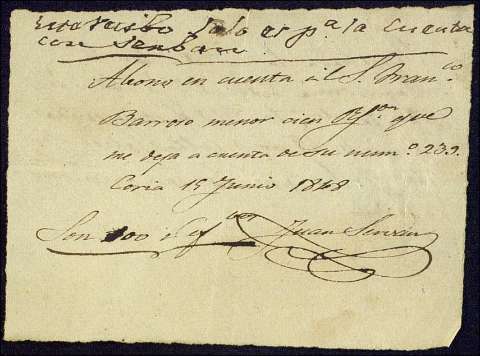 Este Recibo solo es pa la Cuenta
con Senban
Abono en cuenta á el Sr. Franco
Barroso menor cien Rs von que
me deja a cuenta de su numo 239.
Coria 15 Junio 1848
Son 100 rs von Juan